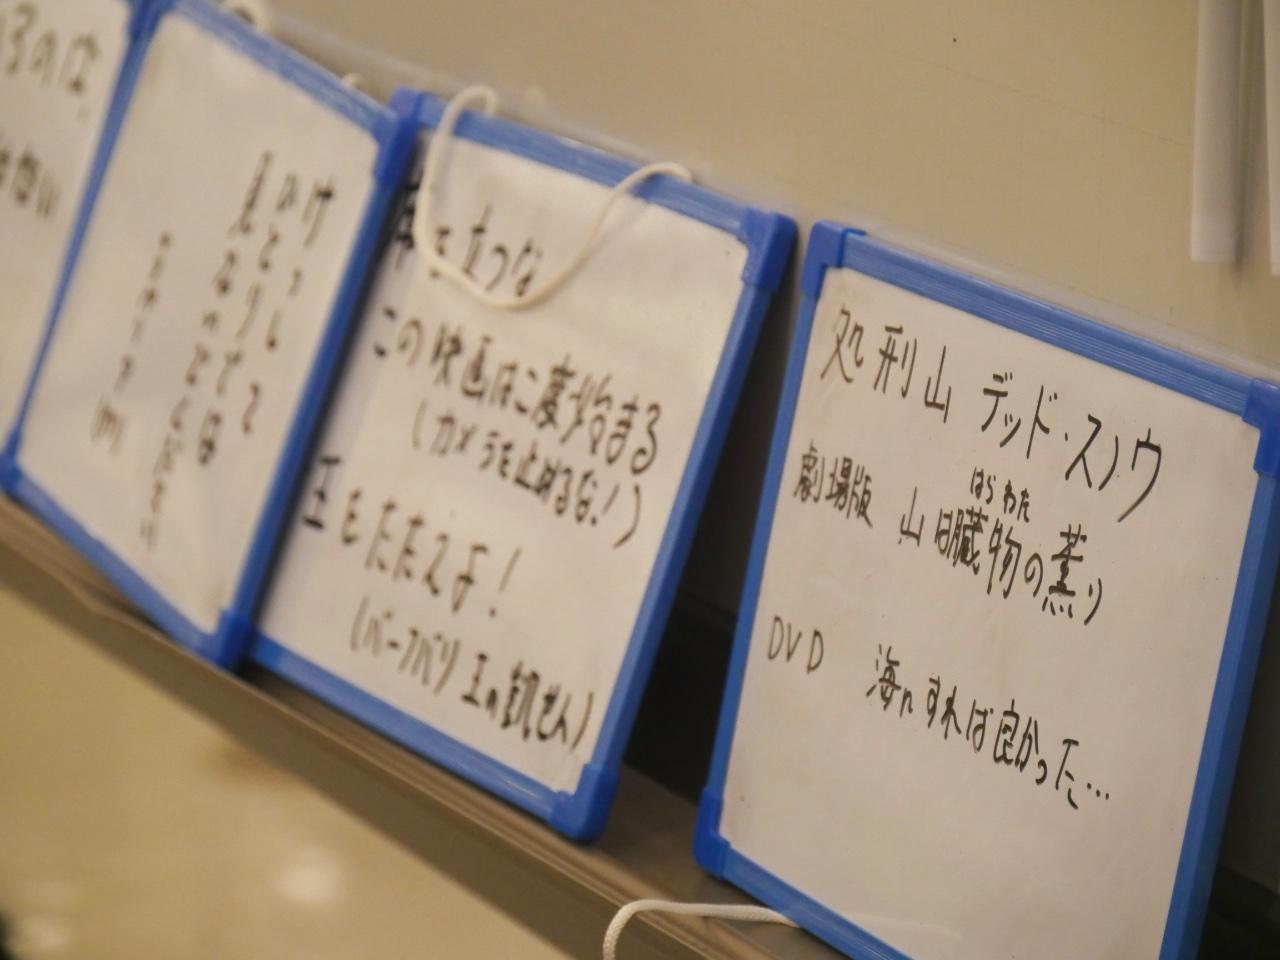 処刑山 デッド・スノウ
劇場版 山は臓物の薫り
はらわた
DVD 海にすれば良かった…
席を立つな
この映画は二度始まる
(カメラを止めるな!)
王をたたえよ!
(バーフバリ 王の凱せん)
けっして
ひとりでは
見ないでください